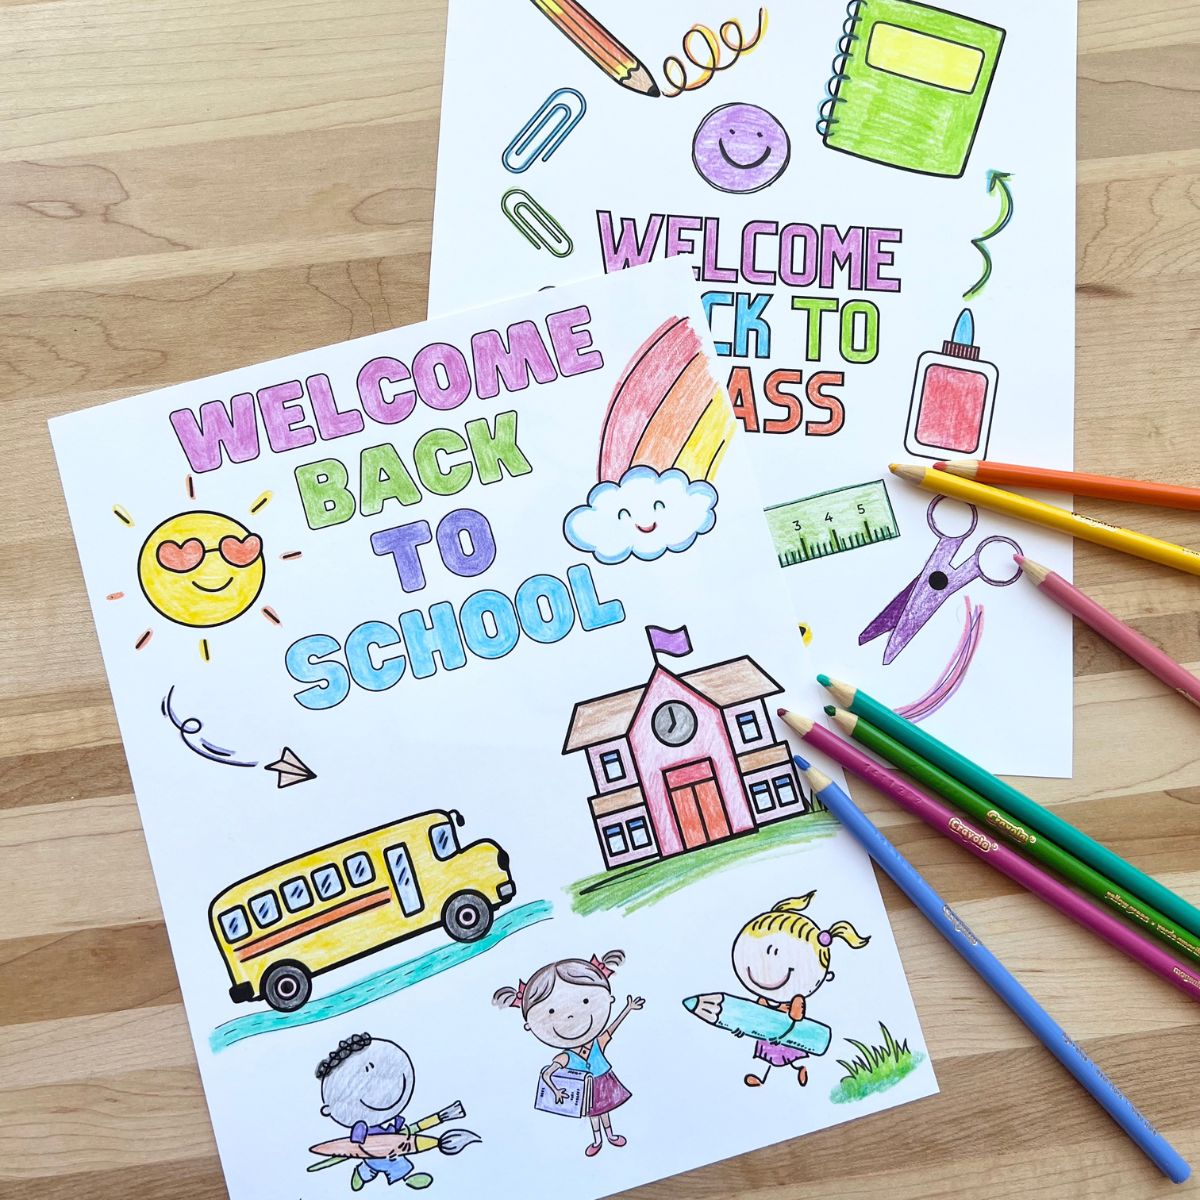 WELCOME
BACK
TO
SCHOOL
WELCOME
CK TO
ASS
3 4 5
Crayola
Crayola
Crayola
yellow green